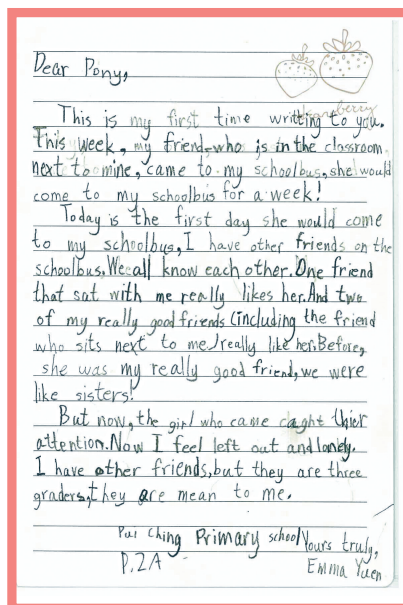 Dear Pony,
Strawberry
This is my first time writting to you.
This week, my friend who is in the classroom
next to mine, came to my schoolbus, she would
come to my schoolbus for a week!
Today is the first day she would come
to my schoolbus, I have other friends on the
schoolbus. We all know each other. One friend
that sat with me really likes her. And two
of my really good friends (including the friend
who sits next to me) really like her. Before,
she was my really good friend, we were
like sisters!
But now, the girl who came caght thier
attention. Now I feel left out and lonely.
I have other friends, but they are three
graders, they are mean to me.
Pui Ching Primary school Yours truly,
P.2A Emma Yuen